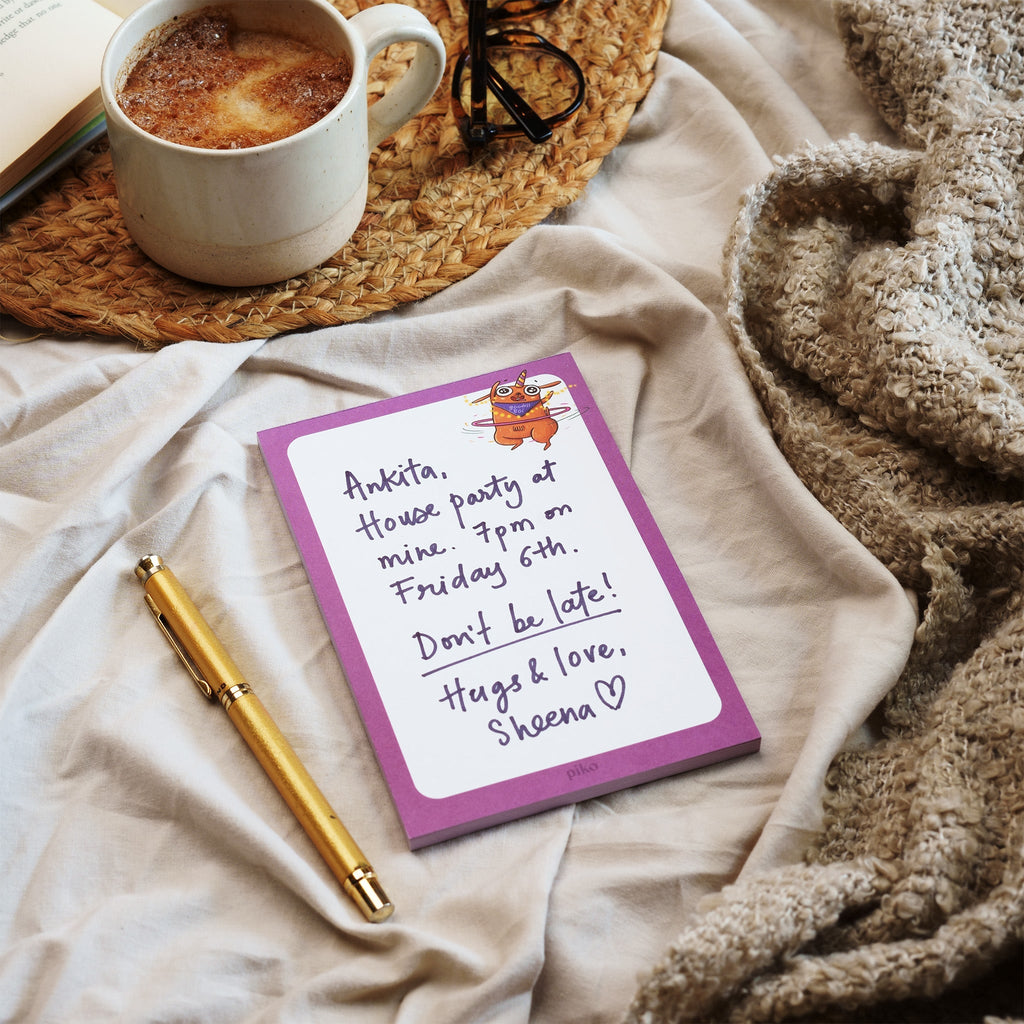 Ankita,
House party at
mine. 7pm on
Friday 6th.
Don't be late!
Hugs & love,
Sheena
piko